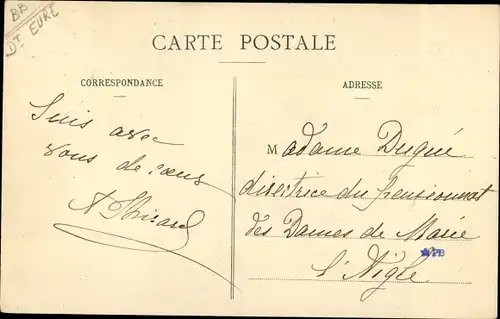 BB
DT EURE
CARTE POSTALE
CORRESPONDANCE
Suis avec
vous de cœur
ADRESSE
Madame Dugué
directrice du pensionnat
des Dames de Marie
l'Aigle